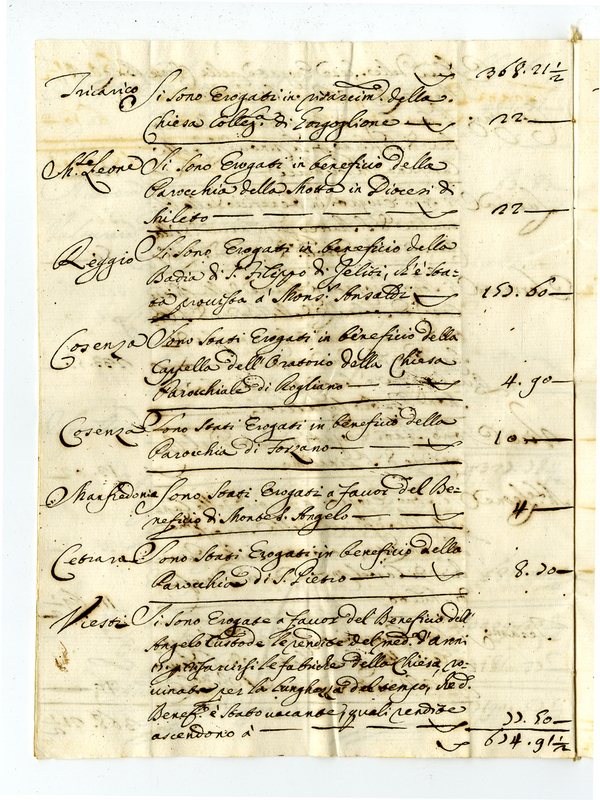 368.21½
Tricarico Si sono Erogati in risarcim.to della
Chiesa Colleg.a di Gorgoglione — 22 —
M.te Leone Si sono Erogati in beneficio della
Parocchia della Motta in Diocesi di
Mileto — 22 —
Reggio Si sono Erogati in beneficio della
Badia di S. Filippo di Jeliti, ch'è sta-
ta provista à Mons.r Ansaldi — 155.60 —
Cosenza Sono stati Erogati in beneficio della
Cappella dell'Oratorio della Chiesa
Parocchiale di Rogliano — 4.90 —
Cosenza Sono stati Erogati in beneficio della
Parocchia di — 10 —
Manfredonia Sono stati Erogati a favor del Be-
neficio di Monte S. Angelo — 45
Cetrara Sono stati Erogati in beneficio della
Parocchia di S. Pietro — 8.70 —
Viesti Si sono Erogate a favor del Beneficio dell'
Angelo Custode le rendite del med.o d'anni
risarcirsi le fabriche della Chiesa ro-
vinata per la lunghezza del tempo, che d.o
Benef.o è stato vacante, quali rendite
ascendono à — 55.50 —
674.91½